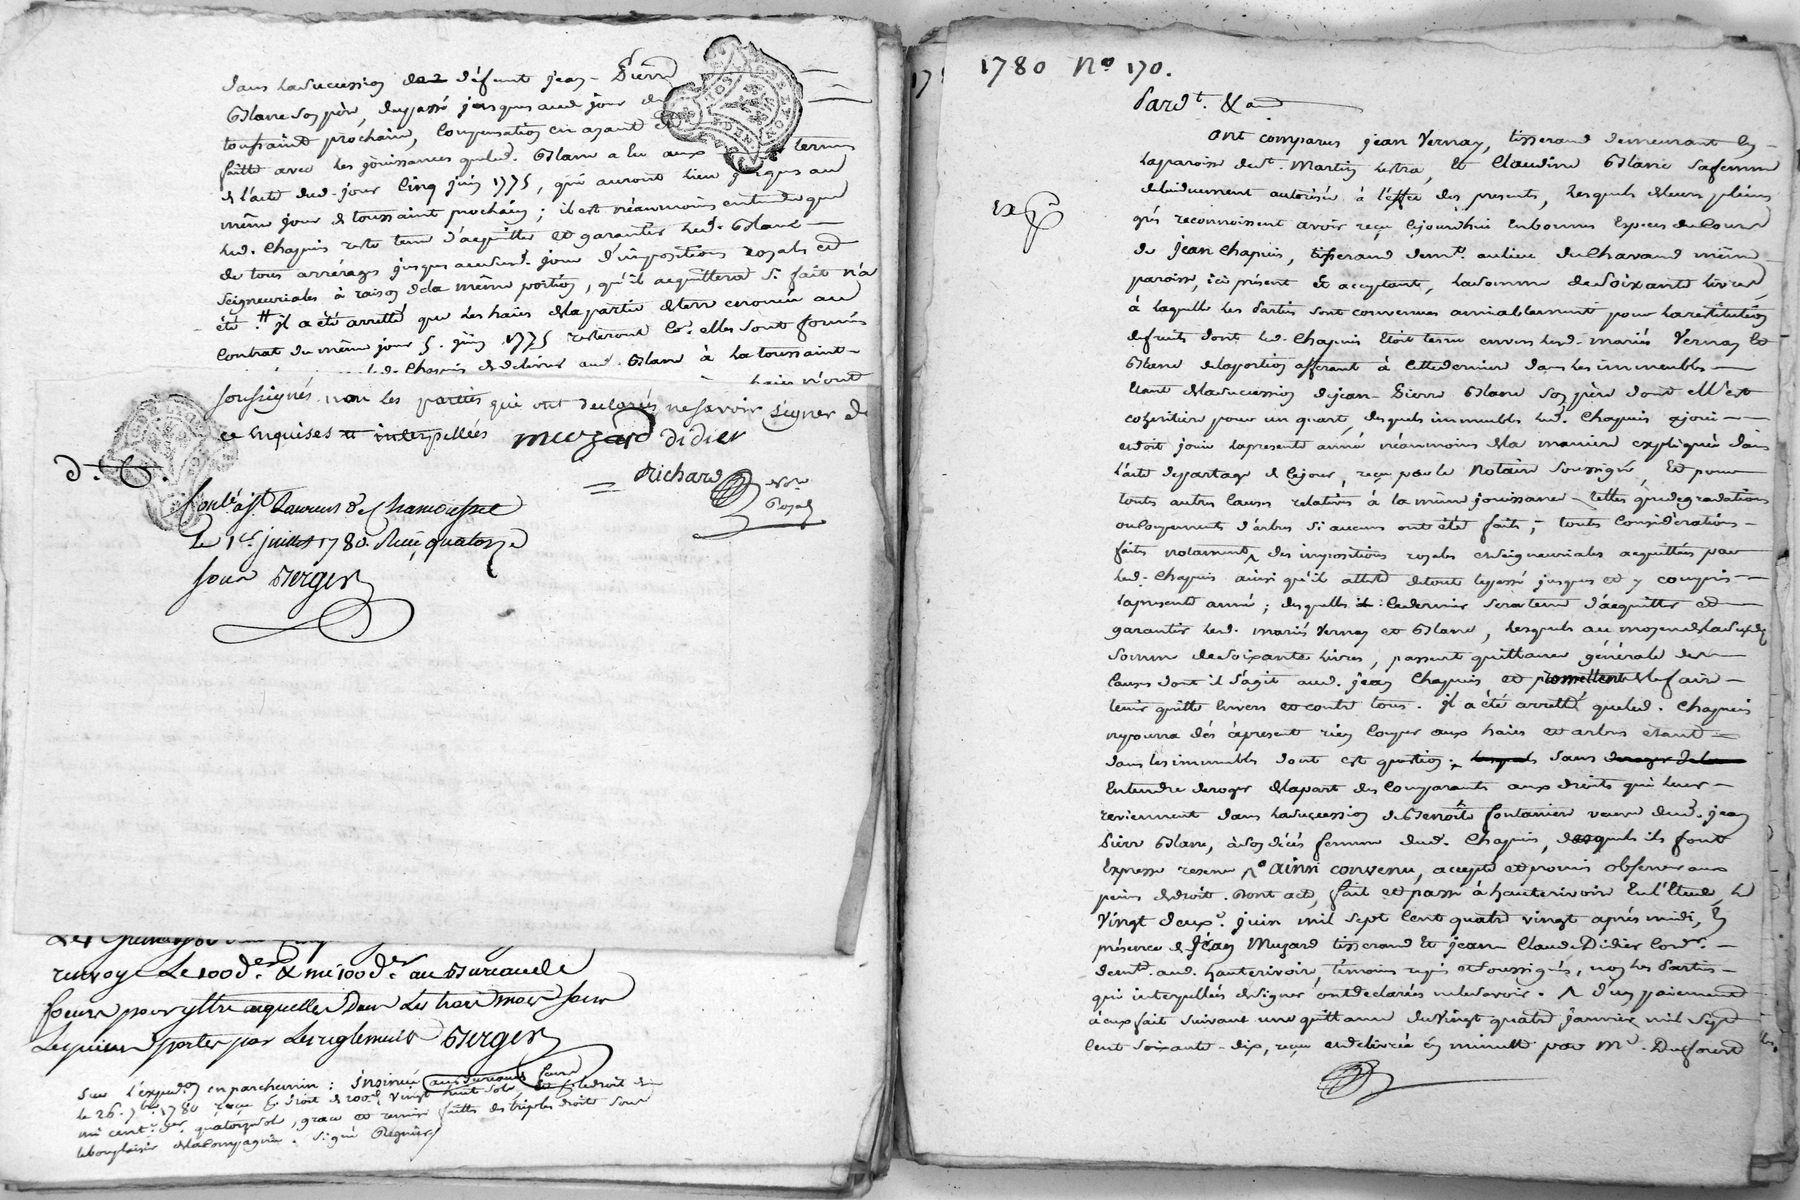 dans la succession dud. défunt jean-Pierre
Blanc son père, du passé jusques aud. jour de
toussaint prochain, Compensation en ayant été
faitte avec les jouissances queled. Blanc a eu aux termes
de l'acte dud. jour Cinq juin 1775, qui auront lieu jusques au
même jour de toussaint prochain; il est néanmoins entendu que
led. Chapuis reste tenu d'acquitter et garantir led. Blanc
de tous arrérages jusques audud. jour d'impositions royales et
Seigneuriales à raison de la même portion, qu'il acquittera si fait n'a
été. # il a été arretté que les haies de la partie de terre énoncée au
Contrat du même jour 5. juin 1775 resteront elles sont formées
led. Chapuis de délivrer aud. Blanc à la toussaint
haies n'ont
soussignés non les parties qui ont déclarés ne savoir signer de
ce enquises et interpellées Muzard didier
Richard
Nore
Royal
d. C.
Conlé à St Laurent de Chamousset
Le 1er juillet 1780. Reçu quatorze
sous Berger
renvoye Le 100d.er & mi 100d.er au Bureau de
feurs pour y être acquittés Dans Les trois mois sous
Les peines portées par Les reglements Berger
Sur l'expedon en parchemin: Insinué au Bureau de feurs
le 26. 7bre 1780 reçu le droit de 100e vingt huit sols
mi cent.e der quatorze sols, grace et remise faittes des triples droits sous
le bon plaisir de la Compagnie. Signé Regnier
1780 No 170.
Pardt. &a
Ont comparus jean Vernay, tisserand demeurant en
la paroisse de St. Martin Lestra, Et Claudine Blanc sa femme
de lui duement autorisée à l'effet des presents, Lesquels de leurs pleins
grés reconnoissent avoir reçu Cejourd'hui En bonnes Especes de Cours
de jean Chapuis, tisserand demt. au lieu du Chavand même
paroisse, ici présent Et acceptant, la somme de Soixante livres,
à laquelle les Parties sont convenues amiablement pour la restitution
de fruits dont led. Chapuis étoit tenu envers lesd. mariés Vernay Et
Blanc de la portion afferant à cette derniere dans les immeubles
Etant de la succession de jean-Pierre Blanc son père dont elle est
cohéritière pour un quart, desquels immeubles led. Chapuis a joui
et doit jouir la presente année néanmoins de la maniere expliquée dans
l'acte de partage de Cejour, reçu par le Notaire soussigné, Et pour
toutes autres Causes relatives à la même jouissance telles que degradations
ou coupements d'arbres si aucuns ont été faits; toutes Considérations
faites notament des impositions royales et seigneuriales acquittées par
led. Chapuis ainsi qu'il atteste de tout le passé jusques et y compris
la presente année; desquelles Ce dernier sera tenu d'acquitter et
garantir lesd. mariés Vernay et Blanc, Lesquels au moyen de la susd.
somme de Soixante Livres, passent quittance générale des
Causes dont il s'agit aud. jean Chapuis et promettent le faire
tenir quitte Envers et contre tous. Il a été arretté queled. Chapuis
ne pourra dès à present rien Couper aux haies et arbres étant
dans les immeubles dont est question; sans
Entendre deroger de la part des Comparants aux droits qui leur
reviennent dans la succession de Benoîte fontanière veuve dud. jean
Pierre Blanc, à son décès femme dud. Chapuis, desquels ils font
Expresse reserve ainsi convenu, accepté et promis observer aux
peines de droit. Dont acte, fait et passé à hauterivoire En l'Etude, Le
Vingt deuxe. juin mil sept Cent quatre vingt après midi, En
présence de Jean Muzard tisserand Et jean Claude Didier Cordr.
demt. aud. hauterivoire, témoins requis et soussignés, non les Parties
qui interpellées de signer ont déclarées ne le savoir. ^ d'un paiement
à eux fait suivant une quittance du Vingt quatre janvier mil Sept
Cent soixante-dix, reçue et délivrée en minutte par Me. Dufournel